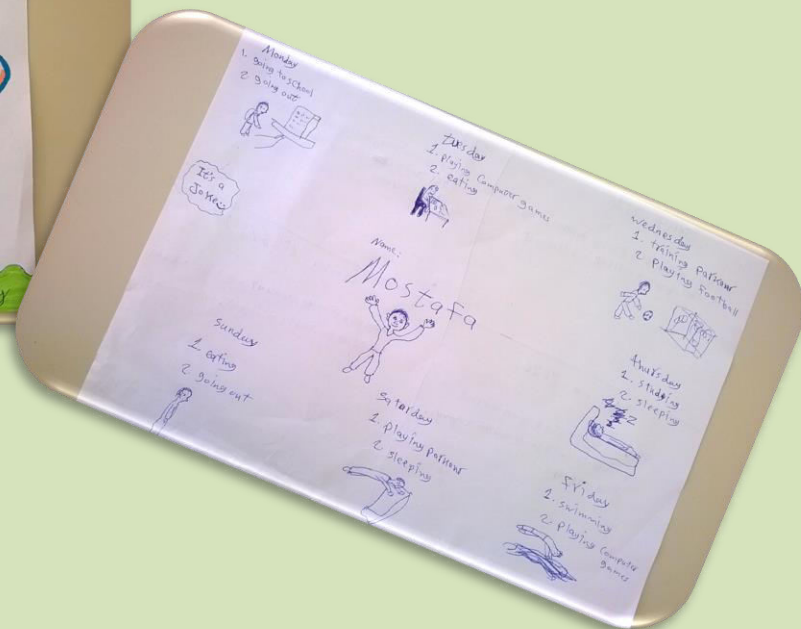 Monday
1. going to school
2. going out
It's a
Joke
tuesday
1. playing Computer games
2. eating
wednesday
1. training parkour
2. playing football
Name:
Mostafa
thursday
1. studying
2. sleeping
Friday
1. swimming
2. playing Computer
games
Saturday
1. playing parkour
2 sleeping
Sunday
1. eating
2. going out